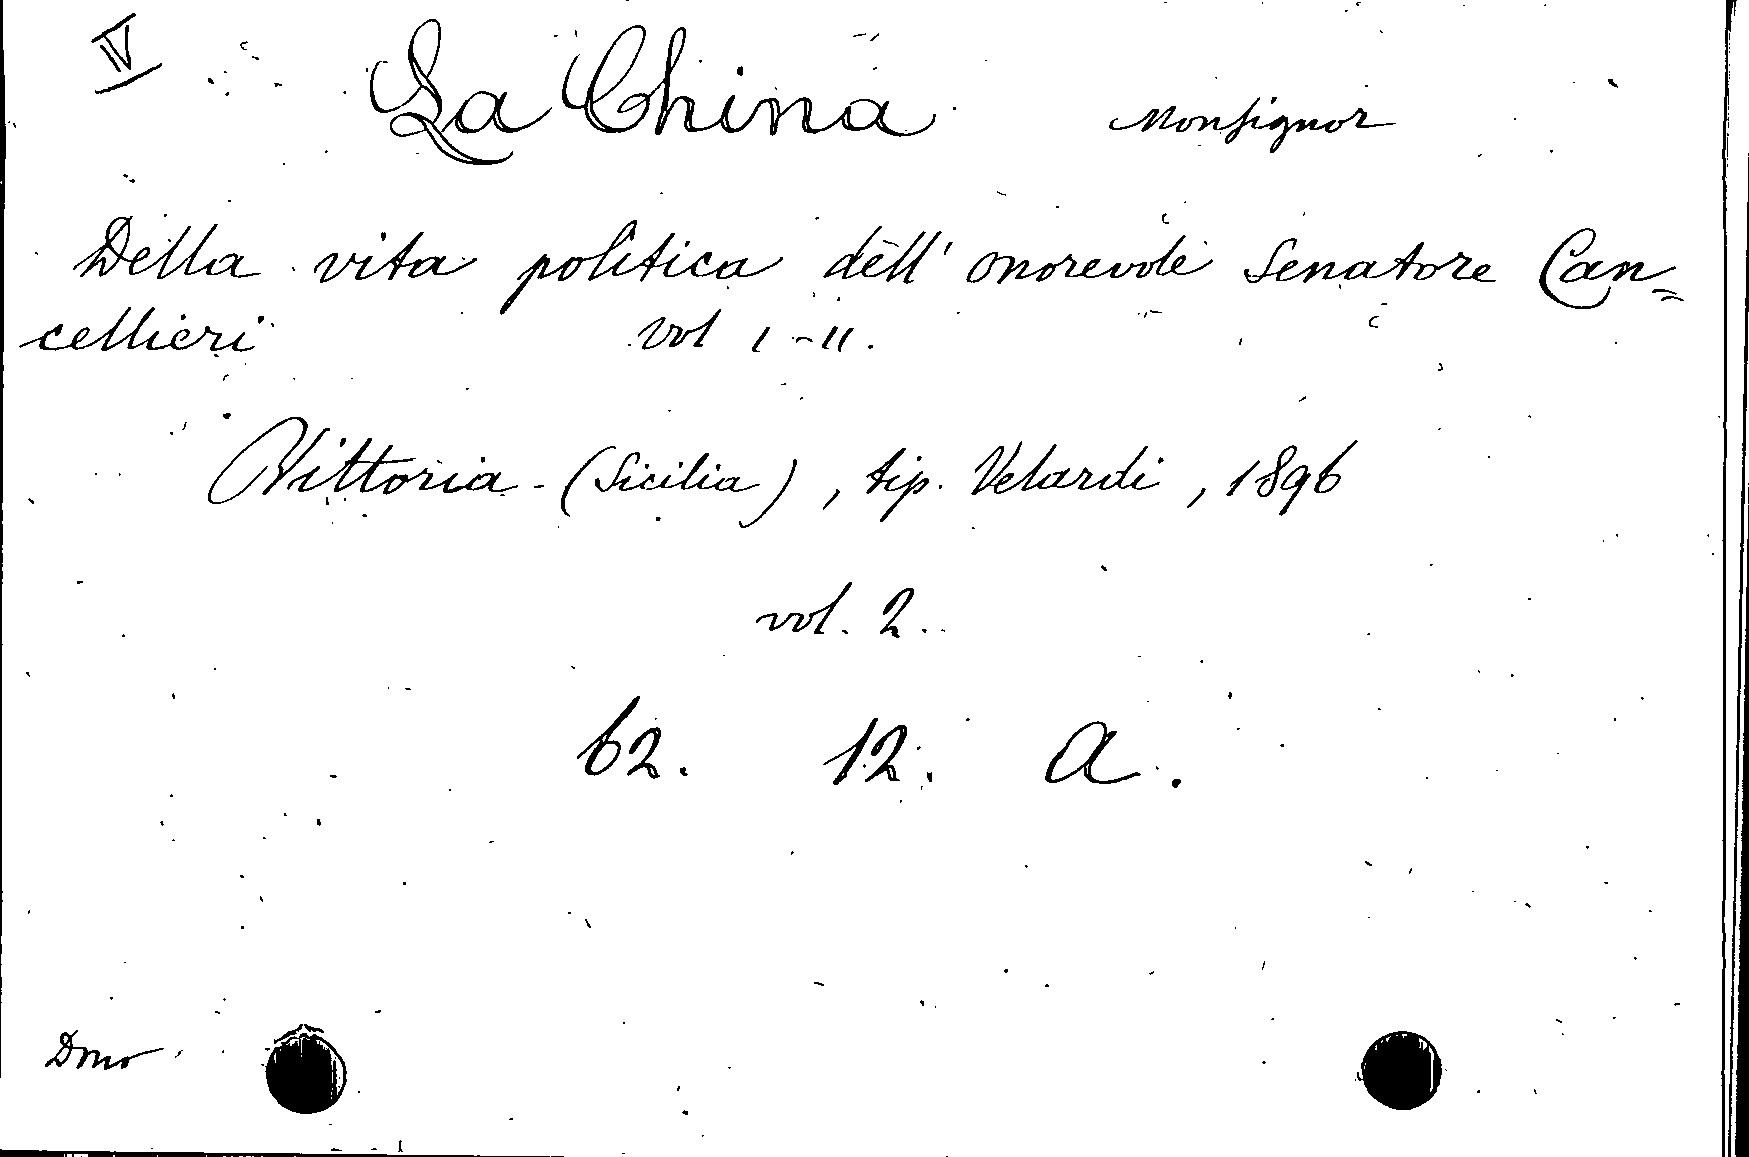 IV
La China Monsignor
Della vita politica dell' onorevole Senatore Can=
cellieri Vol I-II.
Vittoria - (Sicilia), tip. Velardi, 1896
vol. 2.
62. 12. A.
Dono